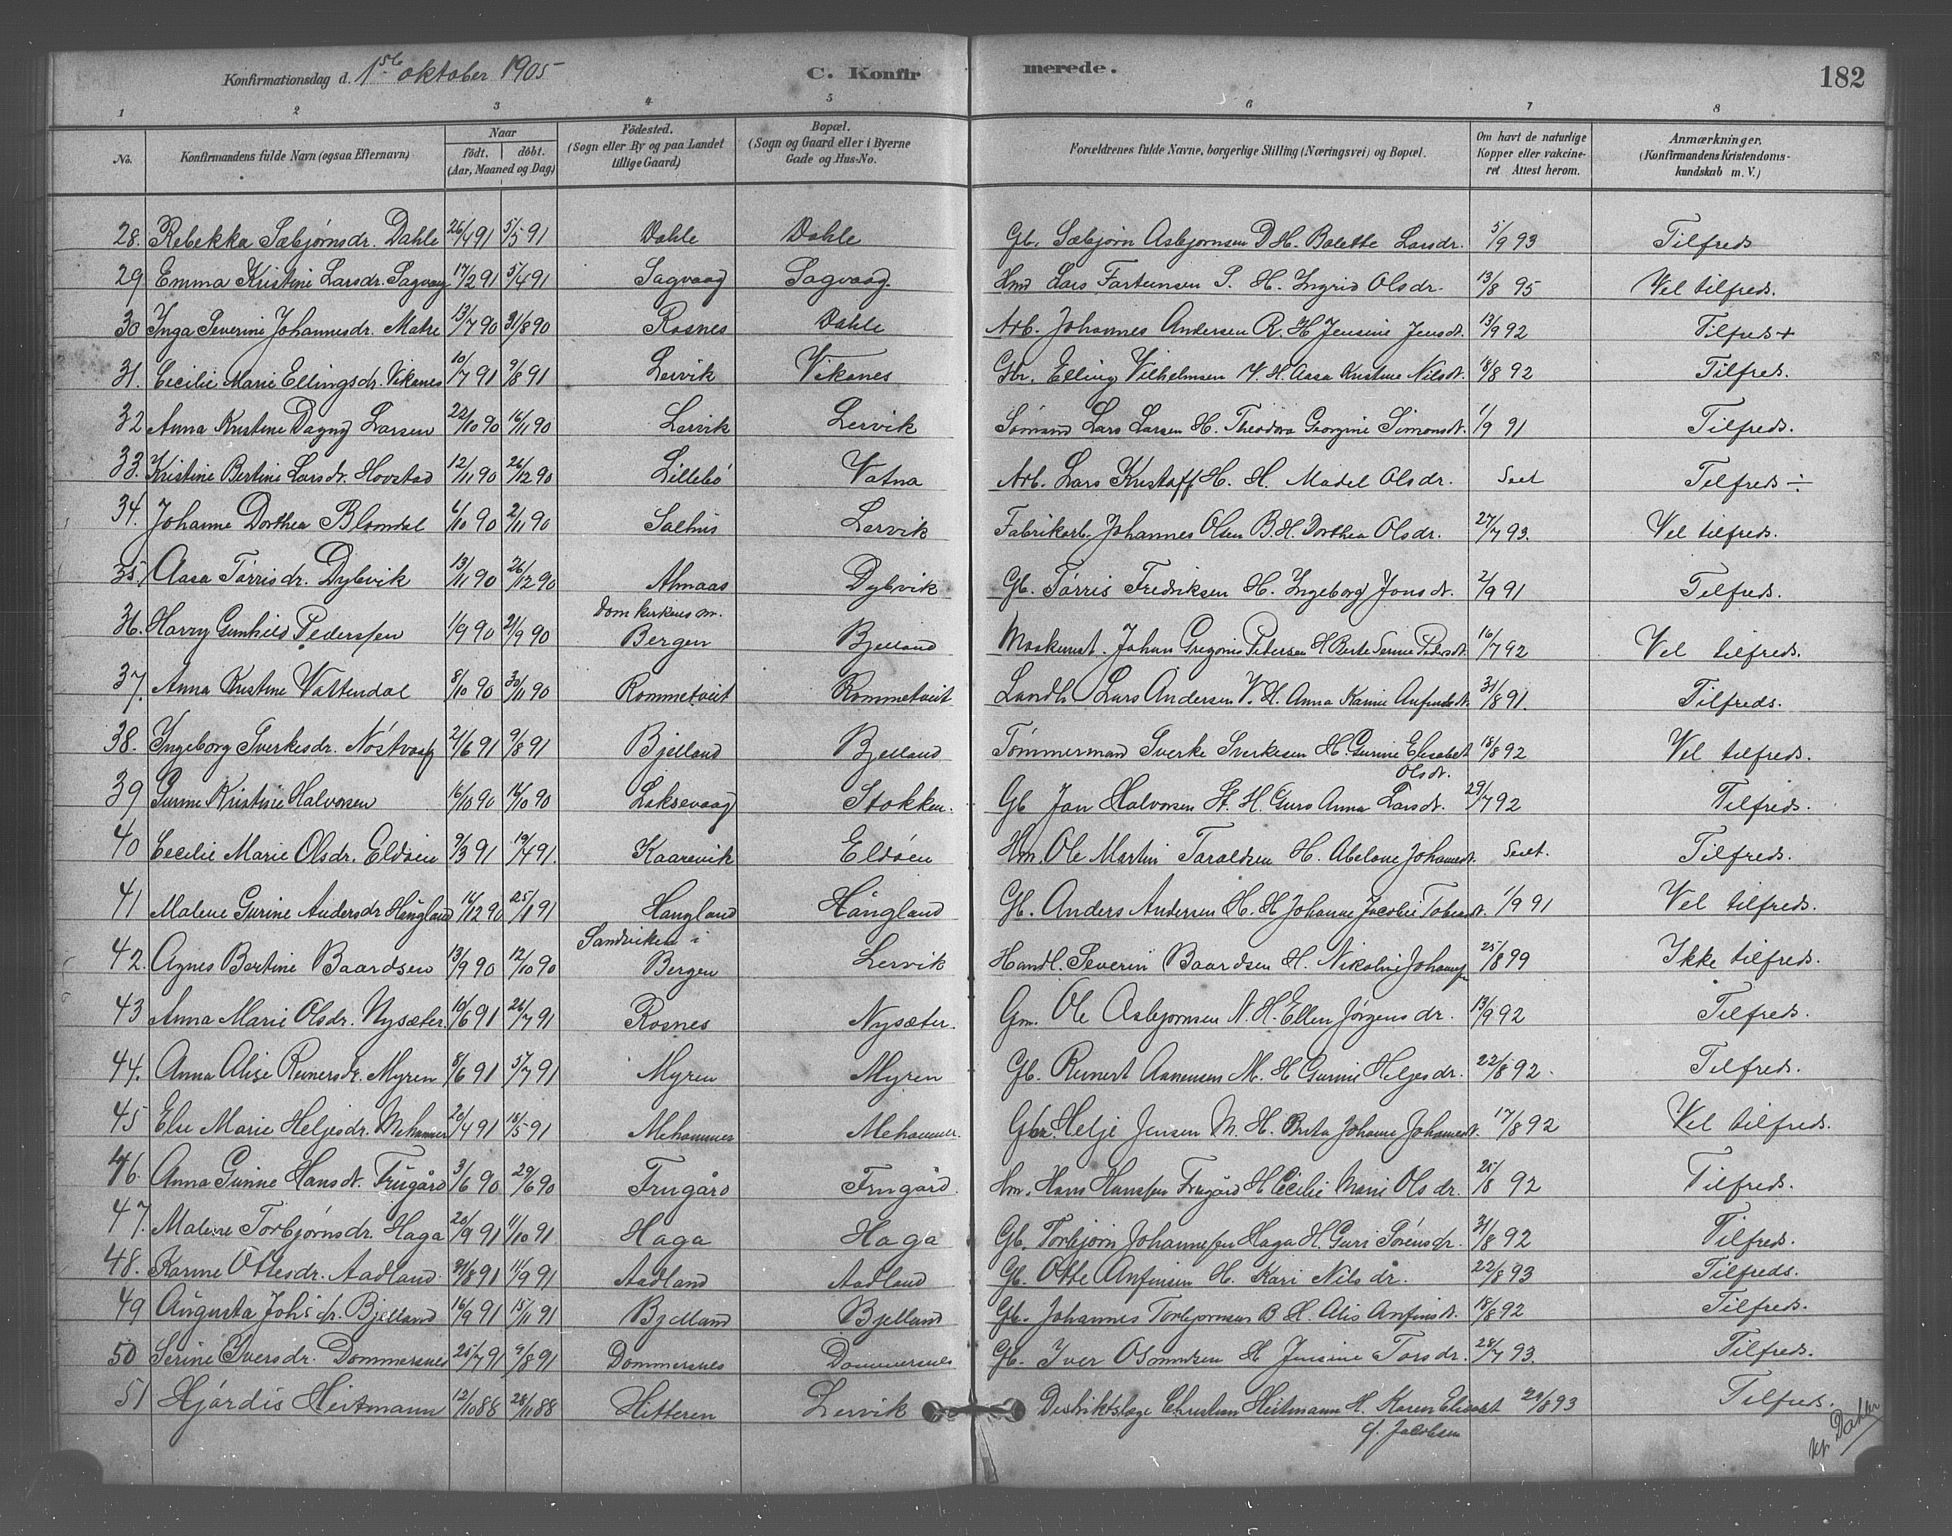 Konfirmationsdag d. 1ste oktober 1905
C. Konfirmerede.
182
1 2 3 4 5 6 7 8
No.
Konfirmandens fulde Navn (ogsaa Efternavn)
Naar
födt. döbt.
(Aar, Maaned og Dag)
Födested.
(Sogn eller By og paa Landet
tillige Gaard)
Bopæl.
(Sogn og Gaard eller i Byerne
Gade og Hus-No.
Forældrenes fulde Navne, borgerlige Stilling (Næringsvei) og Bopæl.
Om havt de naturlige
Kopper eller vakcine-
ret Attest herom.
Anmærkninger.
(Konfirmandens Kristendoms-
kundskab m. V.)
28. Rebekka Sæbjørnsdr. Dahle 26/4 91 5/5 91 Dahle Dahle Gb. Sæbjørn Asbjørnsen D. H. Bolette Larsdr. 5/9 93 Tilfreds
29 Emma Kristine Larsdr. Sagvaag 17/2 91 5/4 91 Sagvaag Sagvaag. Hmd Lars S. H. Ingrid Olsdr. 13/8 95 Vel tilfreds.
30 Inga Severine Johannesdr. Matre 13/7 90 31/8 90 Rosnes Dahle Arb. Johannes Andersen R. H Jensine Jensdt. 13/9 92 Tilfreds +
31. Cecilie Marie Ellingsdr. Vikanes 10/7 91 9/8 91 Lervik Vikanes Gbr. Elling Vilhelmsen V. H. Aasa Kristine Nilsdt. 18/8 92 Tilfreds.
32 Anna Kristine Dagny Larsen 22/10 90 16/11 90 Lervik Lervik Sømand Lars Larsen H. Theodora Georgine Simonsdt. 1/9 91 Tilfreds.
33. Kristine Bertine Larsdr. Hovstad 12/11 90 26/12 90 Lillebö Vatna Arb. Lars Kristoff H. H. Madel Olsdr. Seet Tilfreds ÷
34. Johanne Dorthea Blomdal 6/10 90 2/11 90 Salhus Lervik Fabrikarb. Johannes Olsen B. H. Dorthea Olsdr. 27/7 93. Vel tilfreds.
35. Aasa Tørrisdr. Dybvik 13/11 90 26/12 90 Almaas Dybvik Gb. Tørris Fredriksen H. Ingeborg Jonsdt. 2/9 91 Tilfreds.
36. Harry Gunhild Pederssen 1/9 90 21/9 90 Domkirkens m. Bergen Bjelland Maskinist. Johan Gregorius Petersen H Berte Serine Pedersdt. 16/7 92 Vel tilfreds.
37. Anna Kristine Vattendal 8/10 90 30/11 90 Rommetveit Rommetveit Landh. Lars Andersen V. H. Anna Karine Anfindsdt. 31/8 91. Tilfreds.
38. Ingeborg Sverkesdr. Nöstvaag 2/6 91 9/8 91 Bjelland Bjelland Tømmermand Sverke Sverkesen H. Gurine Elisabet Olsdt. 18/8 92 Vel tilfreds.
39 Gurine Kristine Halvorsen 16/10 90 Laksevaag Stokken. Gb Jan Halvorsen St. H. Guro Anna Larsdt. 29/7 92 Tilfreds.
40 Cecilie Marie Olsdr. Eldöen 9/3 91 19/4 91. Kaarevik Eldöen Hm. Ole Martin Taraldsen H. Abelone Johannesdt. Seet. Tilfreds.
41 Malene Gurine Andersdr Hångland 16/12 90 25/1 91 Hangland Hångland Gb. Anders Andersen H. H Johanne Jacobie Tobiasdt. 1/9 91 Vel tilfreds.
42. Agnes Bertine Baardsen 13/9 90 12/10 90 Sandviken i Bergen Lervik Handl. Severin Baardsen H. Nikoline 25/8 99 Ikke tilfreds.
43 Anna Marie Olsdr. Nysæter. 10/6 91 26/7 91 Rosnes Nysæter. Gm. Ole Asbjørnsen N. H. Ellen Jørgensdr. 13/9 92 Tilfreds.
44. Anna Alise Reinersdr. Myren 8/6 91 5/7 91 Myren Myren Gb. Reinert Aanensen M. H Gurine Heljesdr. 22/8 92. Tilfreds.
45 Else Marie Heljesdr. Mehammer 20/4 91 18/5 91 Mehammer Mehammer. Gbr. Helje Jensen M. H. Brita Johanne Johannesdt. 17/8 92 Vel tilfreds.
46. Anna Gurine Hansdt. Frugård 3/6 90 29/6 90 Frugård Frugård. Hm. Hans Hanssen Frugård H Cecilie Marie Olsdr. 25/8 92 Tilfreds.
47. Malene Torbjørnsdr. Haga 20/9 91 11/10 91 Haga Haga Gb. Torbjørn Johannessen Haga H. Guri Sørensdr. 31/8 92 Tilfreds.
48. Karine Ottesdr. Aadland. 21/8 91 11/9 91 Aadland Aadland Gb. Otte Anfinsen H. Kari Nilsdr. 22/8 93 Tilfreds.
49 Augusta Johs dr. Bjelland 16/9 91 15/11 91 Bjelland Bjelland Gb. Johannes Torbjørnsen B H. Alis Anfinsdt. 18/8 92 Tilfreds.
50 Serine Iversdr. Dommersnes 25/7 91 9/8 91 Dommersnes Dommersnes Gb. Iver Osmundsen H Jensine Torsdr. 28/7 93. Tilfreds.
51 Hjördis Heitmann 12/10 88 28/11 88 Hitteren Lervik Distriktslæge Christian Heitmann H. Karen Elisabet f. Jacobsen 29/8 93 Tilfreds.
kp. Dahler